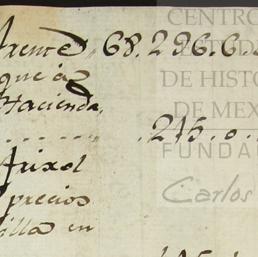 frente 68.296.6.
que á
Hacienda.
245.0.
Arixol
precios
illa en
CENTRO
DE HISTO
DE MEX
FUNDA
Carlos